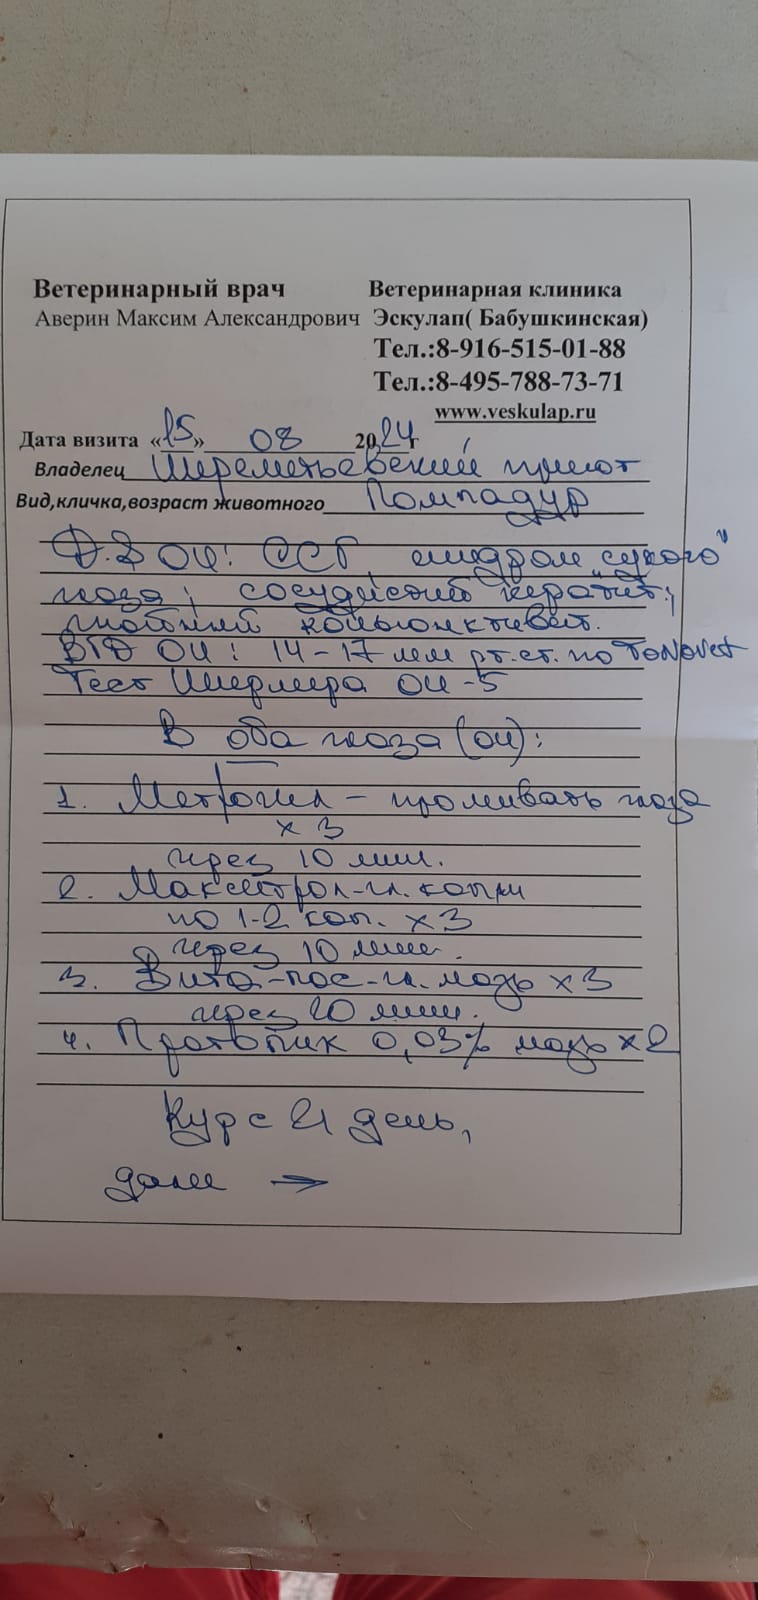 Ветеринарный врач Ветеринарная клиника
Аверин Максим Александрович Эскулап( Бабушкинская)
Тел.:8-916-515-01-88
Тел.:8-495-788-73-71
www.veskulap.ru
Дата визита «15» 08 2024г
Владелец Шереметьевский приют
Вид,кличка,возраст животного Помпадур
Д.З OU: ССГ, синдром "сухого"
глаза; сосудистый кератит;
гнойный конъюнктивит.
ВГД OU: 14-17 мм рт.ст. по TonoVet
Тест Ширмера OU-5
В оба глаза (OU):
1. Метрогил - промывать глаза
х 3
через 10 мин.
2. Макситрол-гл. капли
по 1-2 кап. х3
через 10 мин.
3. Вита-пос-гл. мазь х3
через 20 мин.
4. Протопик 0,03% мазь х2
Курс 21 день,
далее →